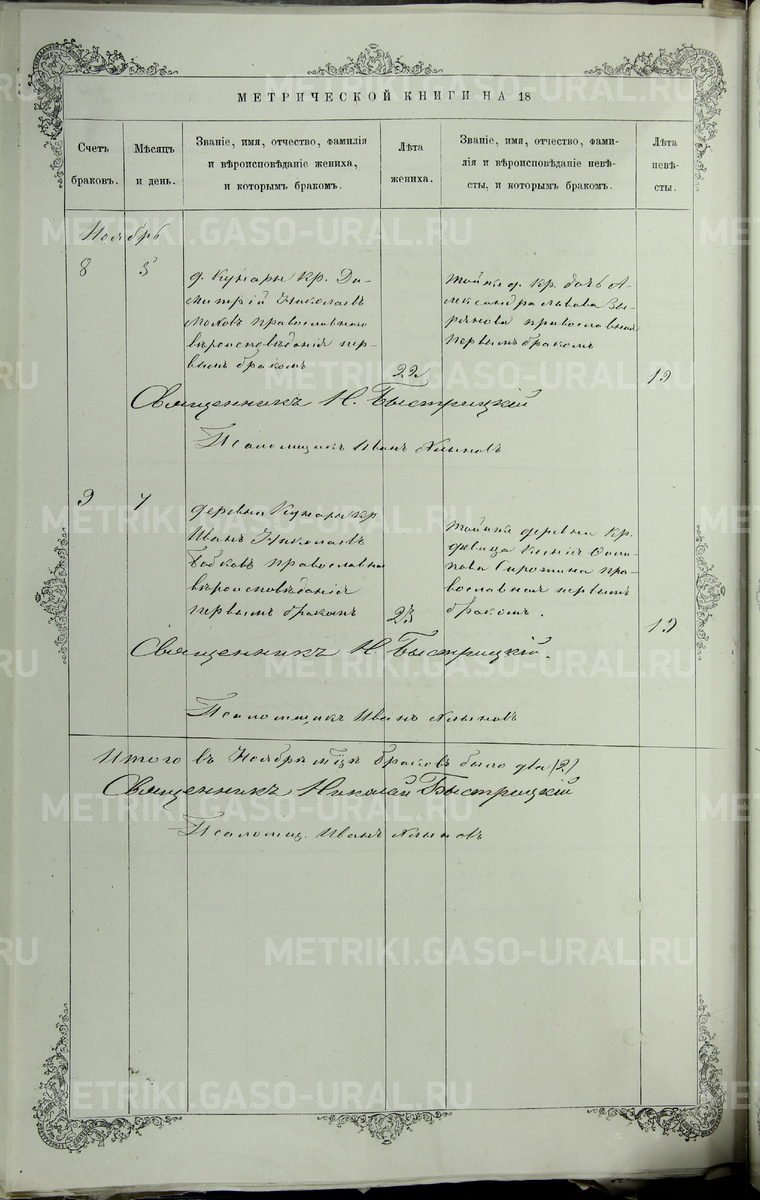 МЕТРИЧЕСКОЙ КНИГИ НА 18
Счетъ браковъ.
Мѣсяцъ и день.
Званіе, имя, отчество, фамилія
и вѣроисповѣданіе жениха,
и которымъ бракомъ.
Лѣта жениха.
Званіе, имя, отчество, фами-
лія и вѣроисповѣданіе невѣ-
сты, и которымъ бракомъ.
Лѣта невѣ-
сты.
Ноябрь
8 5
д. Кунары кр. Ди-
митрій Николаевъ
православнаго
вѣроисповѣданія пер-
вымъ бракомъ
22
тойже д. кр. дочь А-
лександра Львова Зы-
рянова православная
первымъ бракомъ
19
Священникъ Н. Быстрицкій
Псаломщикъ Иванъ
9 7
деревни Кунары кр.
Иванъ Николаевъ
Бабковъ православна
вѣроисповѣданія
первымъ бракомъ
23
тойже деревни кр.
дѣвица Ксенія
Сиротина пра-
вославная первымъ
бракомъ.
19
Священникъ Н. Быстрицкій.
Псаломщикъ Иванъ
Итого въ Ноябрѣ м-цѣ браковъ было два (2)
Священникъ Николай Быстрицкій
Псаломщ. Иванъ
METRIKI.GASO-URAL.RU